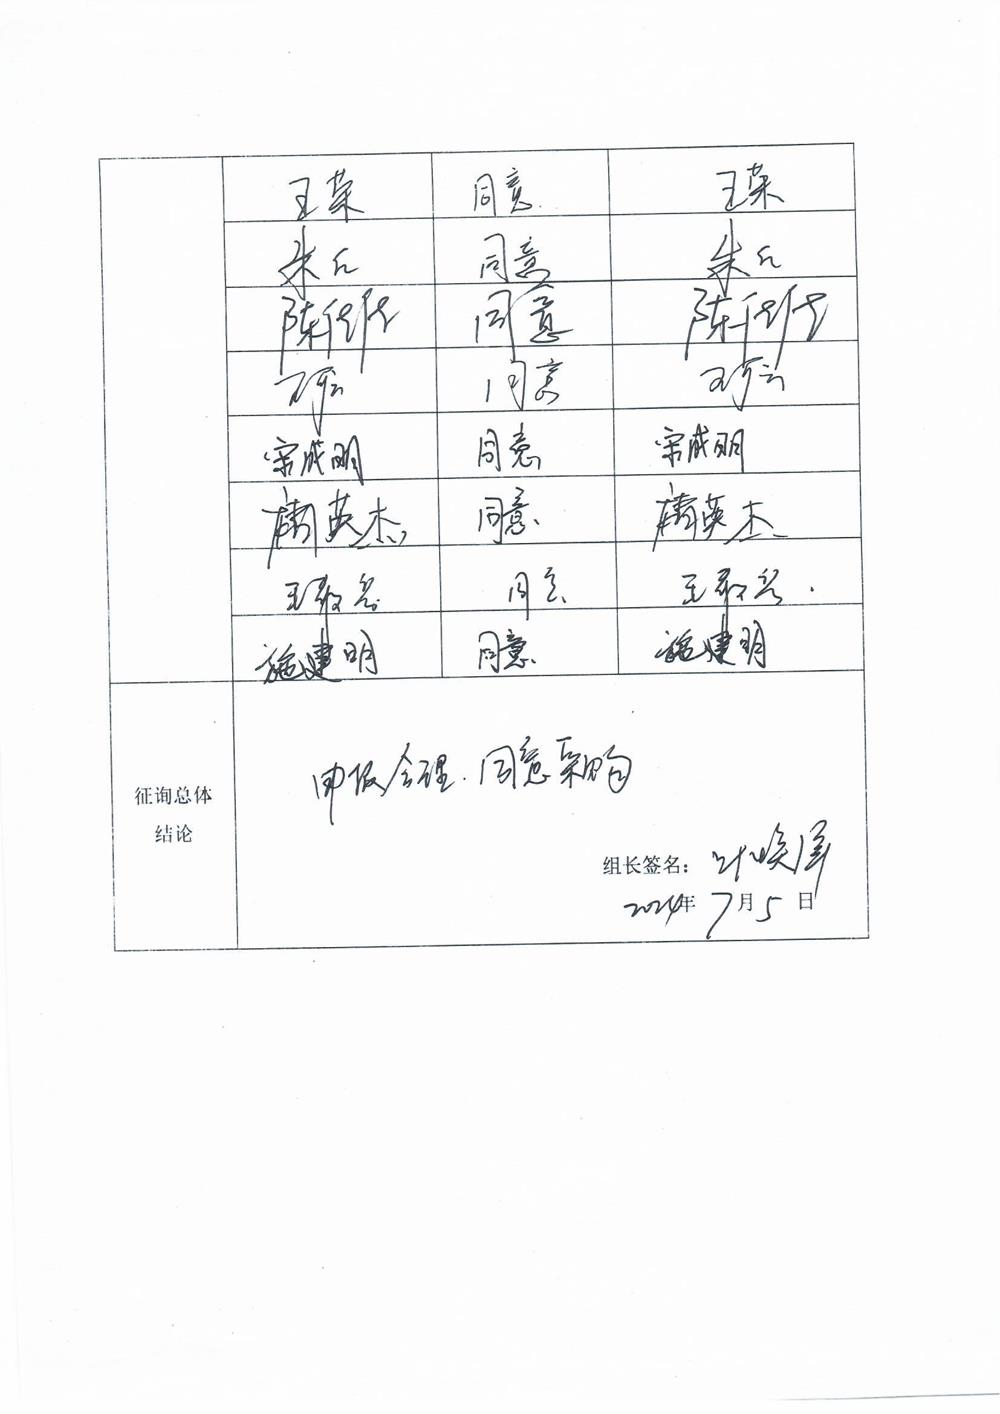 王荣 同意 王荣
朱 同意 朱
陈 同意 陈
王 同意 王
宋成明 同意 宋成明
英杰 同意 英杰
王 同意 王
施建明 同意 施建明
申报合理.同意采购
征询总体
结论
组长签名:
2024年7月5日